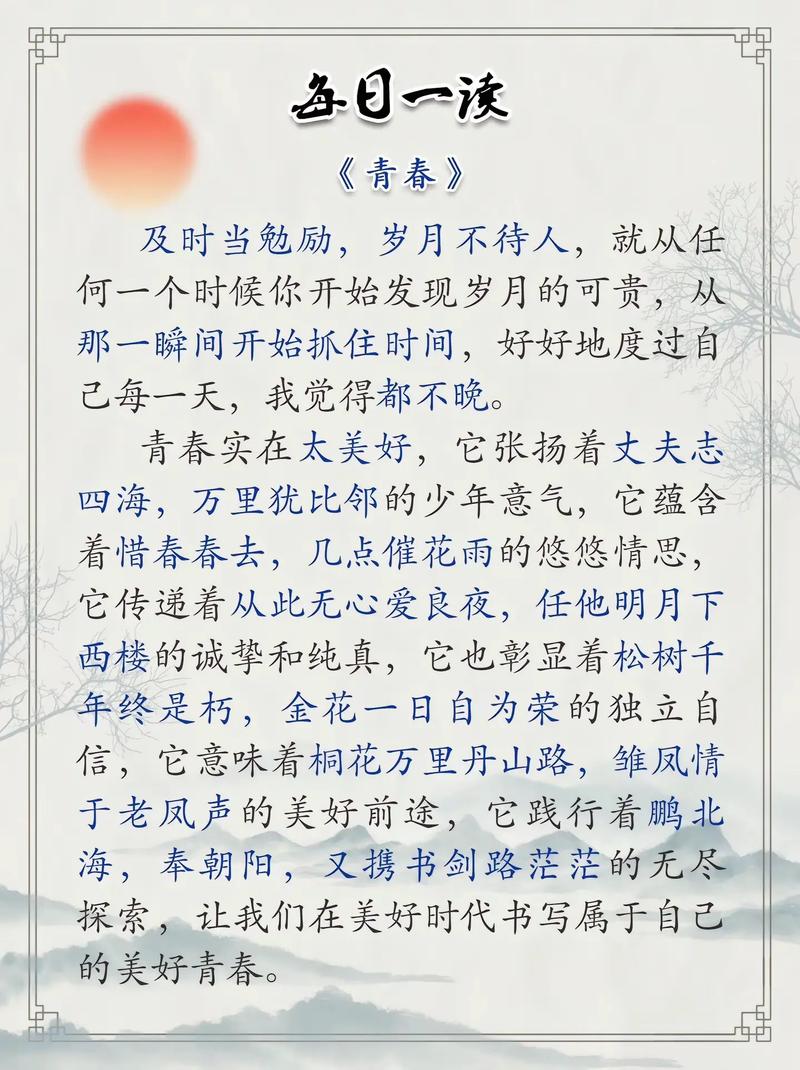 每日一读
《青春》
及时当勉励，岁月不待人，就从任
何一个时候你开始发现岁月的可贵，从
那一瞬间开始抓住时间，好好地度过自
己每一天，我觉得都不晚。
青春实在太美好，它张扬着丈夫志
四海，万里犹比邻的少年意气，它蕴含
着惜春春去，几点催花雨的悠悠情思，
它传递着从此无心爱良夜，任他明月下
西楼的诚挚和纯真，它也彰显着松树千
年终是朽，金花一日自为荣的独立自
信，它意味着桐花万里丹山路，雏凤情
于老凤声的美好前途，它践行着鹏北
海，奉朝阳，又携书剑路茫茫的无尽
探索，让我们在美好时代书写属于自己
的美好青春。